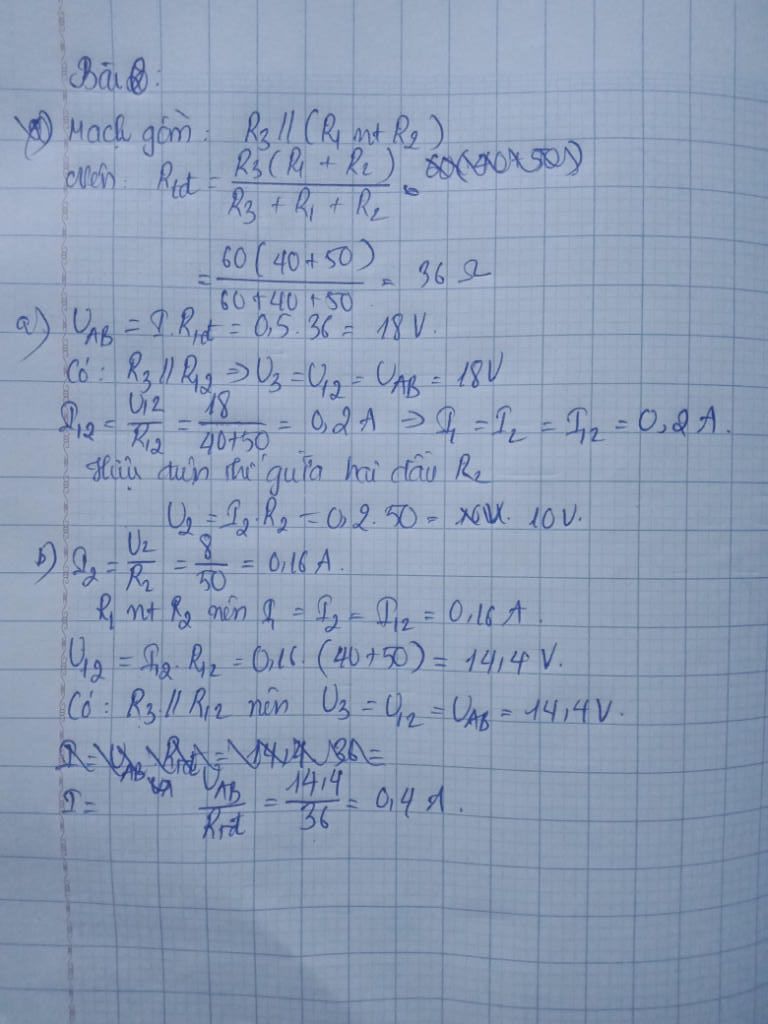 Bài 8:
Mạch gồm: R3 // (R1 nt R2)
nên: Rtđ = R3(R1 + R2) / R3 + R1 + R2 =
= 60(40+50) / 60+40+50 = 36 Ω
a) UAB = I.Rtđ = 0,5.36 = 18V.
Có: R3 // R12 => U3 = U12 = UAB = 18V
I12 = U12 / R12 = 18 / 40+50 = 0,2A => I1 = I2 = I12 = 0,2A.
Hiệu điện thế giữa hai đầu R2
U2 = I2.R2 = 0,2.50 = 10V.
b) I2 = U2 / R2 = 8 / 50 = 0,16A.
R1 nt R2 nên I1 = I2 = I12 = 0,16A.
U12 = I12.R12 = 0,16.(40+50) = 14,4V.
Có: R3 // R12 nên U3 = U12 = UAB = 14,4V.
I = UAB / Rtđ = 14,4 / 36 = 0,4A.